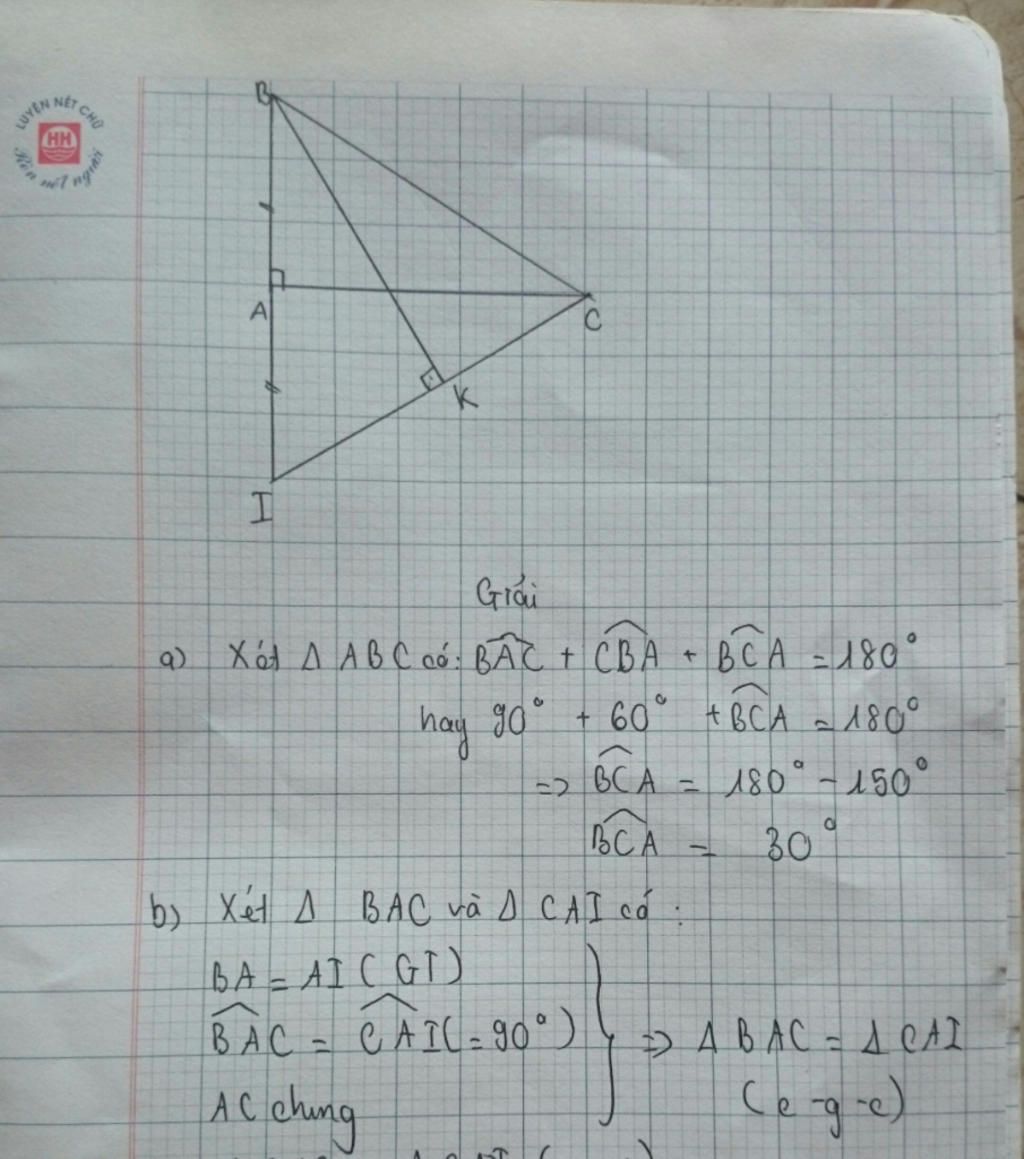 LUYỆN NÉT CHỮ
HH
Rèn nết người
B
A
C
K
I
Giải
a) Xét Δ ABC có: BAC + CBA + BCA = 180°
hay 90° + 60° + BCA = 180°
=> BCA = 180° - 150°
BCA = 30°
b) Xét Δ BAC và Δ CAI có:
BA = AI (GT)
BAC = CAI (= 90°)
AC chung
=> Δ BAC = Δ CAI
(c-g-c)